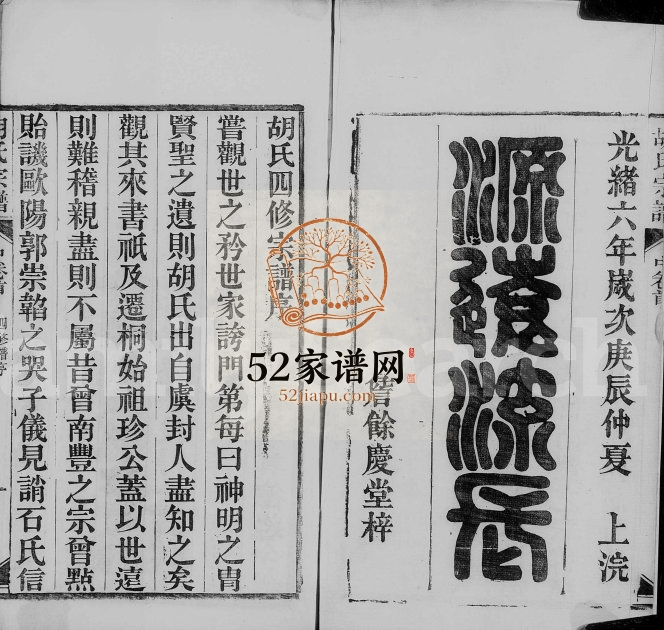 光緒六年歲次庚辰仲夏 上浣
源遠流長
餘慶堂梓
胡氏四修宗譜序
嘗觀世之矜世家誇門第每曰神明之胄
賢聖之遺則胡氏出自虞封人盡知之矣
觀其來書祇及遷桐始祖珍公蓋以世遠
則難稽親盡則不屬昔曾南豐之宗曾點
貽譏歐陽郭崇韜之哭子儀見誚石氏信
胡氏宗譜
四修譜序
52家谱网
52jiapu.com